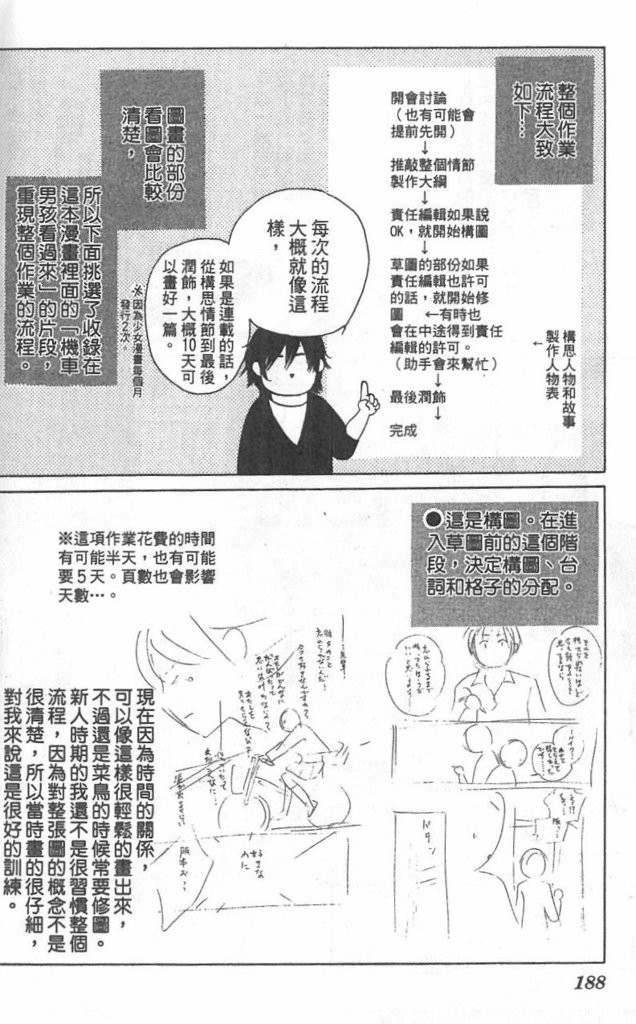 整個作業
流程大致
如下…
開會討論
（也有可能會
提前先開）
↓
推敲整個情節
製作大綱
↓
責任編輯如果說
OK，就開始構圖
↓
草圖的部份如果
責任編輯也許可
的話，就開始修
圖　←有時也
會在中途得到責任
編輯的許可。
（助手會來幫忙）
↓
最後潤飾
↓
完成
構思人物和故事
製作人物表
↓
每次的流程
大概就像這
樣，
如果是連載的話，
從構思情節到最後
潤飾，大概10天可
以畫好一篇。
※因為少女漫畫每個月
發行2次。
圖畫的部份
看圖會比較
清楚，
所以下面挑選了收錄在
這本漫畫裡面的「機車
男孩看過來」的片段，
重現整個作業的流程。
●這是構圖。在進
入草圖前的這個階
段，決定構圖、台
詞和格子的分配。
※這項作業花費的時間
有可能半天，也有可能
要5天。頁數也會影響
天數…。
ドタン
好きな
のに
現在因為時間的關係，
可以像這樣很輕鬆的畫出來，
不過還是菜鳥的時候常要修圖。
新人時期的我還不是很習慣整個
流程，因為對整張圖的概念不是
很清楚，所以當時畫的很仔細，
對我來說這是很好的訓練。
188